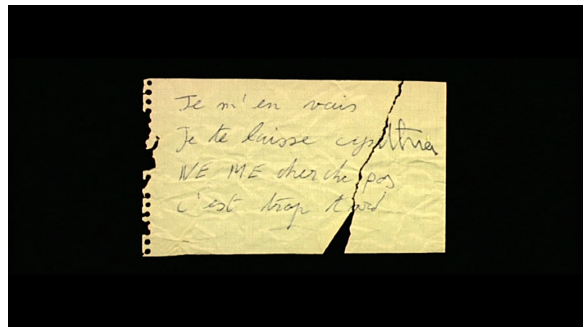 Je m'en vais
Je te laisse cynthia
NE ME cherche pas
c'est trop tard